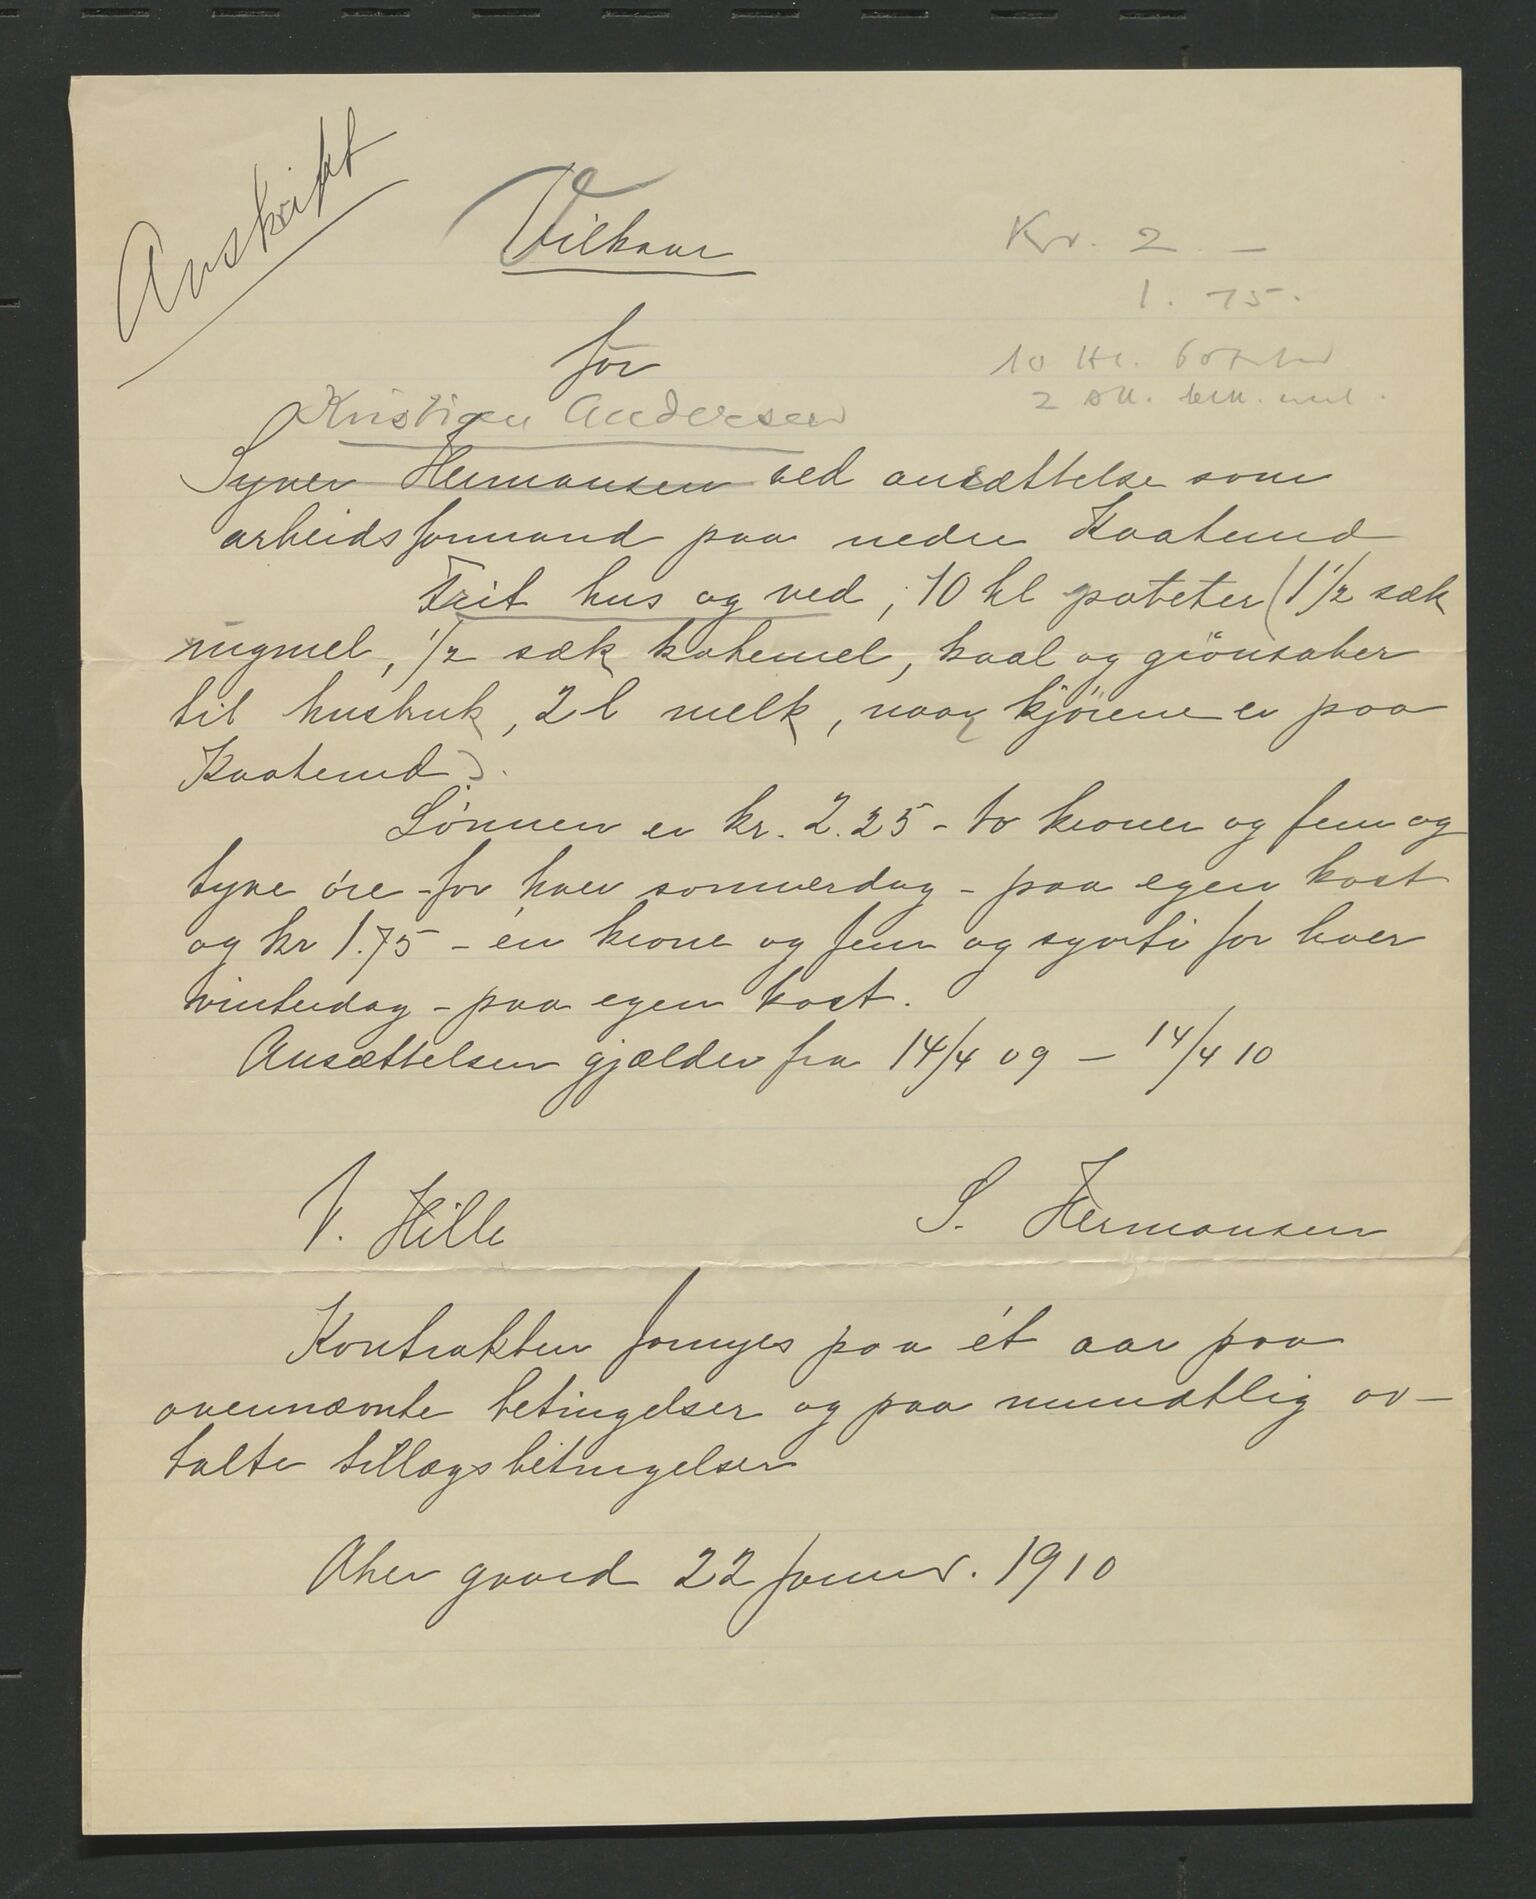 Avskrift
Vilkaar
for
Kr. 2 –
1. 75.
10 Hl. potet
2 sk.
Kristian Andersen
Syver Hermansen ved ansættelse som
arbeidsformand paa nedre Kaaterud
Frit hus og ved, 10 hl poteter (1 1/2 sæk
rugmel, 1/2 sæk havremel, kaal og grönsaker
til husbruk, 2 l melk, naar kjörene er paa
Kaaterud).
Lönnen er kr. 2.25 – to kroner og fem og
tyve öre – for hver sommerdag – paa egen kost
og kr 1.75 – én krone og fem og sytti for hver
vinterdag – paa egen kost.
Ansættelsen gjælder fra 14/4 09 – 14/4 10
V. Hille
S. Hermansen
Kontrakten fornyes paa ét aar paa
ovennævnte betingelser og paa mundtlig av-
talte tillægsbetingelser
Aker gaard 22 januar. 1910